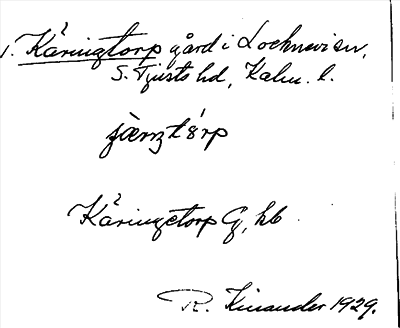 1. Käringtorp gård i Locknevi sn,
S. Tjusts hd, Kalm. l.
Käringetorp G, kb
R. Kinander 1929.